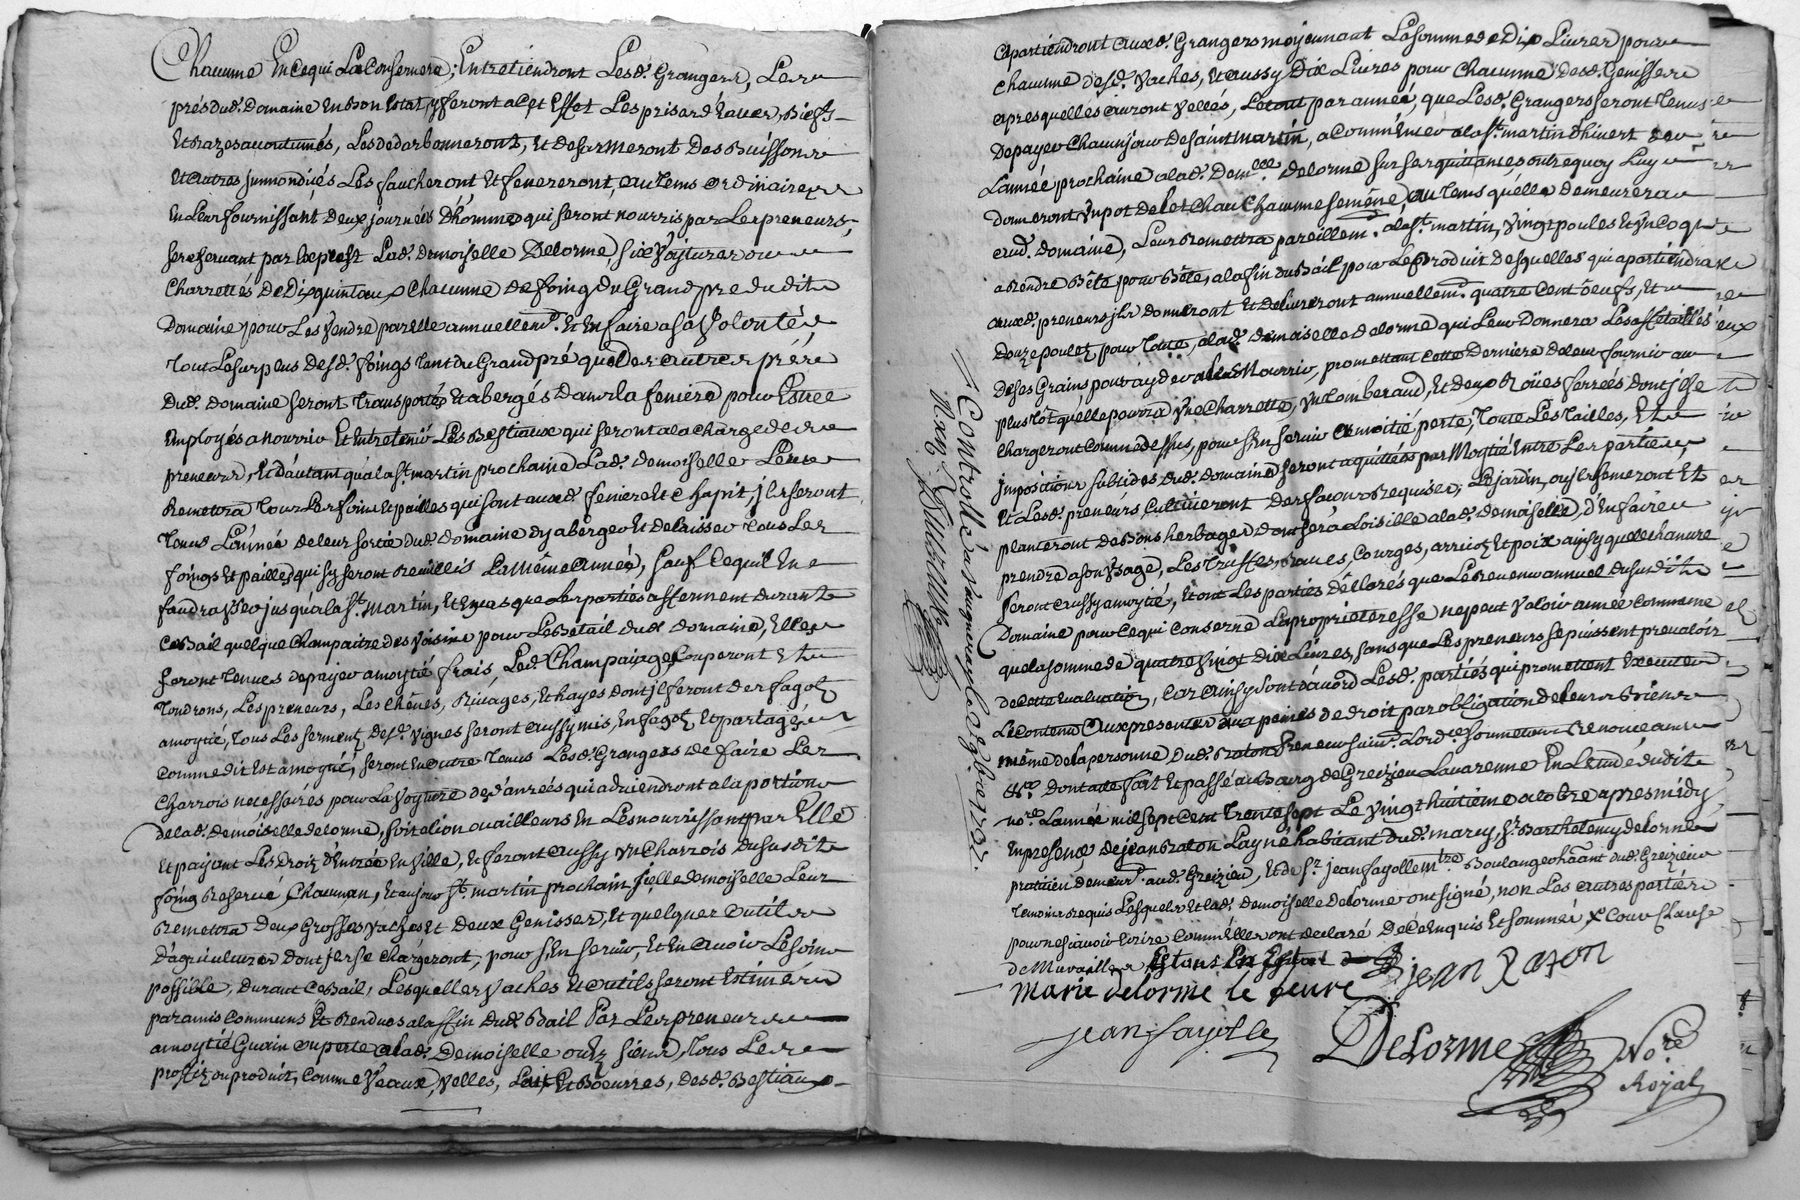 Chacune En ce qui La Consernera; Entretiendront Lesd. Grangers, Les
prés dud. Domaine En Bon Estat, y feront a cet Effet Les prises d'Eaux, Biefs
Et Razes acoutumés, Les dedarbonneront, Et desarmeront Des Buissons
Et autres jnmondices Les faucheront Et feneront, au tems ordinaire
En Leur fournissant deux journées d'homme qui seront nourris par Les preneurs;
se reservant par Exprest Lad. demoiselle Delorme, six voitures ou
Charrettés de Dix quintaux Chacune de foing du Grand pre dudit
Domaine pour Les vendre par Elle annuellemt. Et En faire a sa volonté
tout Le surplus desd. foings tant du Grand pré que des autres prés
dud. domaine seront transportés Et abergés dans la feniere pour Estre
Employés a nourrir Et Entretenir Les Bestiaux qui seront a la charge des
preneurs, Et d'autant qu'a la st. martin prochaine Lad. demoiselle Leur
Remettra tous Les foins Et pailles qui sont auxd. feniere Et Chapit, jls seront
tenus L'année de leur sortie dud. domaine d'y aberger Et delaisser tous Les
foings Et pailles qui sy seront Reuillis La même année, sauf Ce quil En
faudra user jusqua la st. martin, Et En cas que Les parties afferment durant
Ce Bail quelque Champaitre des voisins pour Le Betail dud. domaine, Elles
seront tenues de payer a moytié frais, Led. Champaiage, Couperont Et
tondrons, Les preneurs, Les chênes, Rivages, Et hayes dont jl feront des fagots
a moytié, tous Les serments desd. vignes seront aussy mis En fagots Et partagés
comme dit Est a moytié, seront En outre tenus Lesd. Grangers de faire Les
Charrois necessaires pour La voyture des danrées qui adviendront a la portion
de lad. demoiselle delorme, soit a lion ou ailleurs En Les nourrissant par Elle
Et payant Les droits d'Entrée En ville, Et feront aussy un Charrois du susdit
foing Reservé Chacun an, Et au jour st. martin prochain Lad. demoiselle Leur
Remettra deux Grosses vaches Et deux Genisses, Et quelques outils
d'agriculture dont jls se chargeront, pour s'En servir, Et En avoir Le soin
possible, durant Ce Bail, Lesquelles vaches Et outils seront Estimés
par amis communs Et Rendues a la fin dud. Bail Par Les preneurs
a moytié Guain ou perte a lad. Demoiselle ou es siens, tous Les
profits ou produit, Comme veaux, velles, Lait Et Boeurres, desd. Bestiaux
apartiendront auxd. Grangers moyennant La somme de Dix Livres pour
chacune desd. vaches, Et aussy Dix Livres pour Chacune desd. Genisses
apres quelles auront vellés, Le tout par année, que Lesd. Grangers seront tenus
de payer Chacun jour de saint martin, a Commencer a la st. martin d'hivert de
L'année prochaine a lad. demlle. delorme sur ses quittances, outre quoy Luy
donneront un pot de let Chau Chacune semeine, au tems quelle demeurera
aud. domaine, Leur Remettra pareillemt. a la st. martin, vingt poules Et un Coq
a Rendre Bête pour Bête, a la fin du Bail pour Le produit desquelles qui apartiendra
auxd. preneurs jls donneront Et delivreront annuellemt. quatre Cent oeufs, Et
douze poulets pour toute, a lad. demoiselle delorme qui Leur Donnera Les
de ses Grains pour ayder a les Nourrir, promettant cette Derniere de leur fournir au
plus tôt quelle pourra une Charrette, un tomberaud, Et deux Roües ferrées dont jls se
chargeront comme dessus, pour s'En servir a moitié perte, toute Les tailles, Et
jmpositions subsides dud. domaine seront aquittées par Moytié Entre Les parties,
Et Lesd. preneurs Cultiveront des façons Requises, Le jardin, ou jls semeront Et
planteront de Bons herbages dont sera Loisible a lad. demoiselle, d'En faire
prendre a son usage, Les truffes, Raves, Courges, arricots Et poix ainsy que Le chanvre
seront aussy a moytié, Et ont Les parties déclarés que Le Revenu annuel du susdit
Domaine pour Ce qui Conserne La proprieteresse ne peut valoir année commune
que la somme de quatre vingt dix Livres, sans que Les preneurs se puissent prevaloir
de cette Evaluation, Car ainsy sont d'acord Lesd. parties qui promettent Executer
Le Contenu aux presentes a peines de droit par obligation de leurs Biens
même de la personne dud. Raton Preneur
dont acte fait Et passé au Bourg de Greizieu Lavarenne En L'Etude dudit
nore. L'année mil sept cent trente sept Le vingt huitieme octobre apres midy
En presence de jean Raton Layné habitant dud. marcy, sr. Barthelemy delorme
praticien demeurt. aud. Greizieu, Et de sr. jean fayolle mtre. Boulanger hatant dud. Greizieu
temoins Requis Lesquels Et lad. demoiselle delorme ont signé, non Les autres parties
pour ne sçavoir Ecrire Comm'Elles ont declaré De Ce Enquis Et sommés
marie delorme le jeune
jean Raton
jean fayolle
Delorme
Nore.
Royal
Controllé a